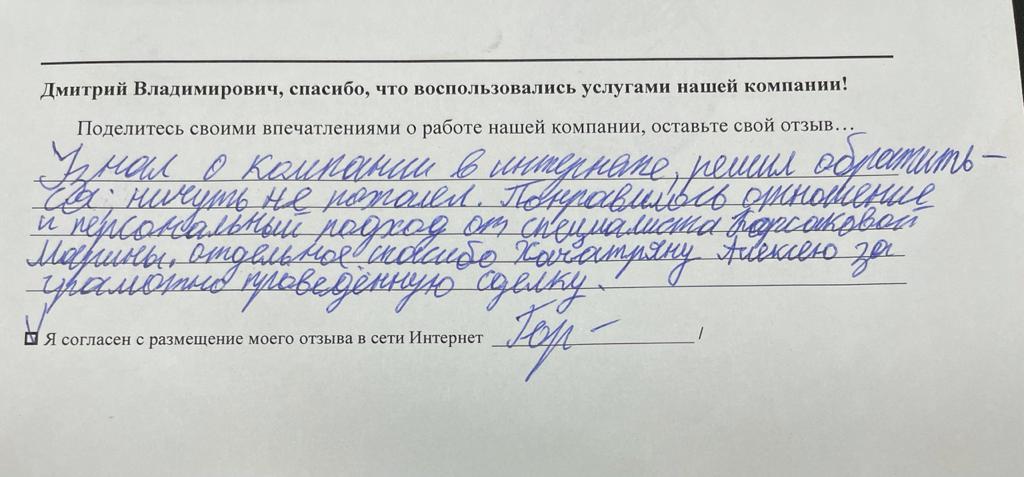 Дмитрий Владимирович, спасибо, что воспользовались услугами нашей компании!
Поделитесь своими впечатлениями о работе нашей компании, оставьте свой отзыв…
Узнал о компании в интернете, решил обратить-
ся, ничуть не пожалел. Понравилось отношение
и персональный подход от специалиста Корсаковой
Марины. отдельное спасибо Хачатряну Алексею за
грамотно проведённую сделку.
Я согласен с размещение моего отзыва в сети Интернет Гор- /